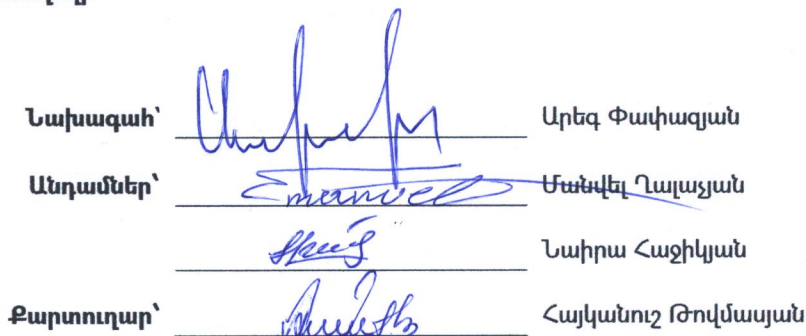 Նախագահ՝ Արեգ Փափազյան
Անդամներ՝ Emanuel Մանվել Ղալաչյան
Նաիրա Հաջիկյան
Քարտուղար՝ Հայկանուշ Թովմասյան